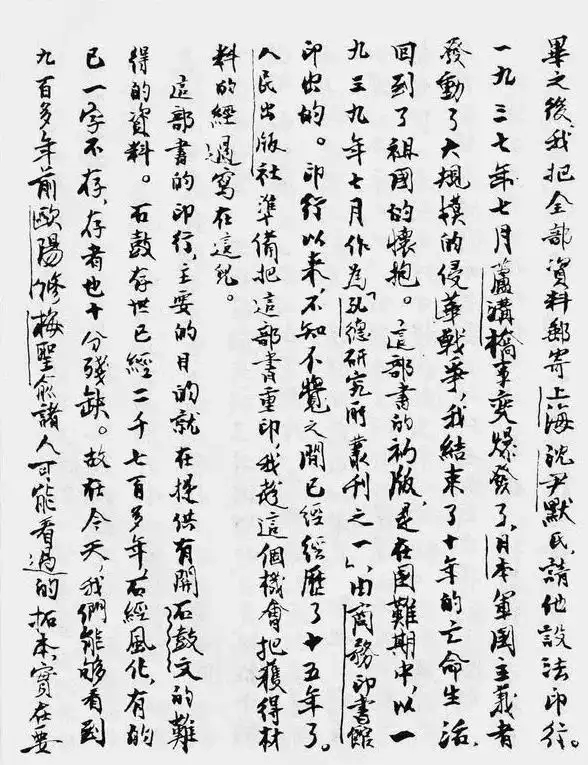 畢之後我把全部資料郵寄上海沈尹默氏,請他設法印行。
一九三七年七月蘆溝橋事變爆發了,日本軍國主義者
發動了大規模的侵華戰爭,我結束了十年的亡命生活,
回到了祖國的懷抱。這部書的初版,是在國難期中,以一
九三九年七月作為「孔德研究所叢刊之一」,由商務印書館
印出的。印行以來,不知不覺之間已經經歷了十五年了。
人民出版社準備把這部書重印,我趁這個機會把獲得材
料的經過寫在這兒。
這部書的印行,主要的目的就在提供有關石鼓文的難
得的資料。石鼓存世已經二千七百多年,石經風化,有的
已一字不存,存者也十分殘缺。故在今天,我們能够看到
九百多年前歐陽修梅聖俞諸人可能看過的拓本,實在要